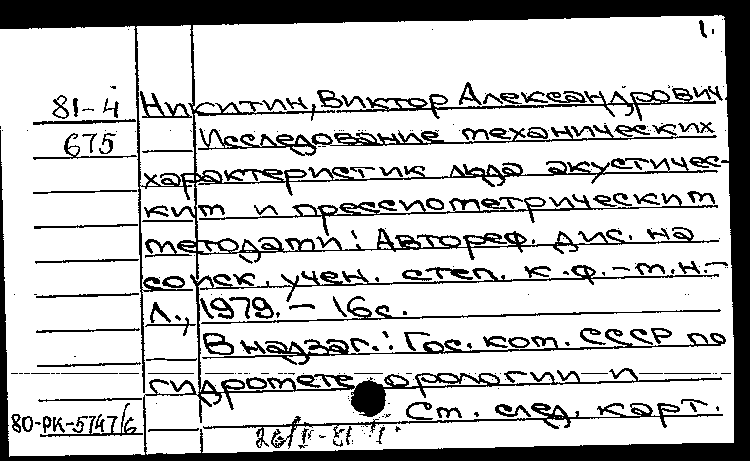 1.
81-4 Никитин, Виктор Александрович.
675 Исследование механических
характеристик льда акустичес-
ким и прессиометрическим
методами: Автореф. дис. на
соиск. учен. степ. к.ф.-м.н.-
Л., 1979. - 16с.
В надзаг.: Гос. ком. СССР по
гидрометеорологии и
Ст. след. карт.
80-РК-5747/6